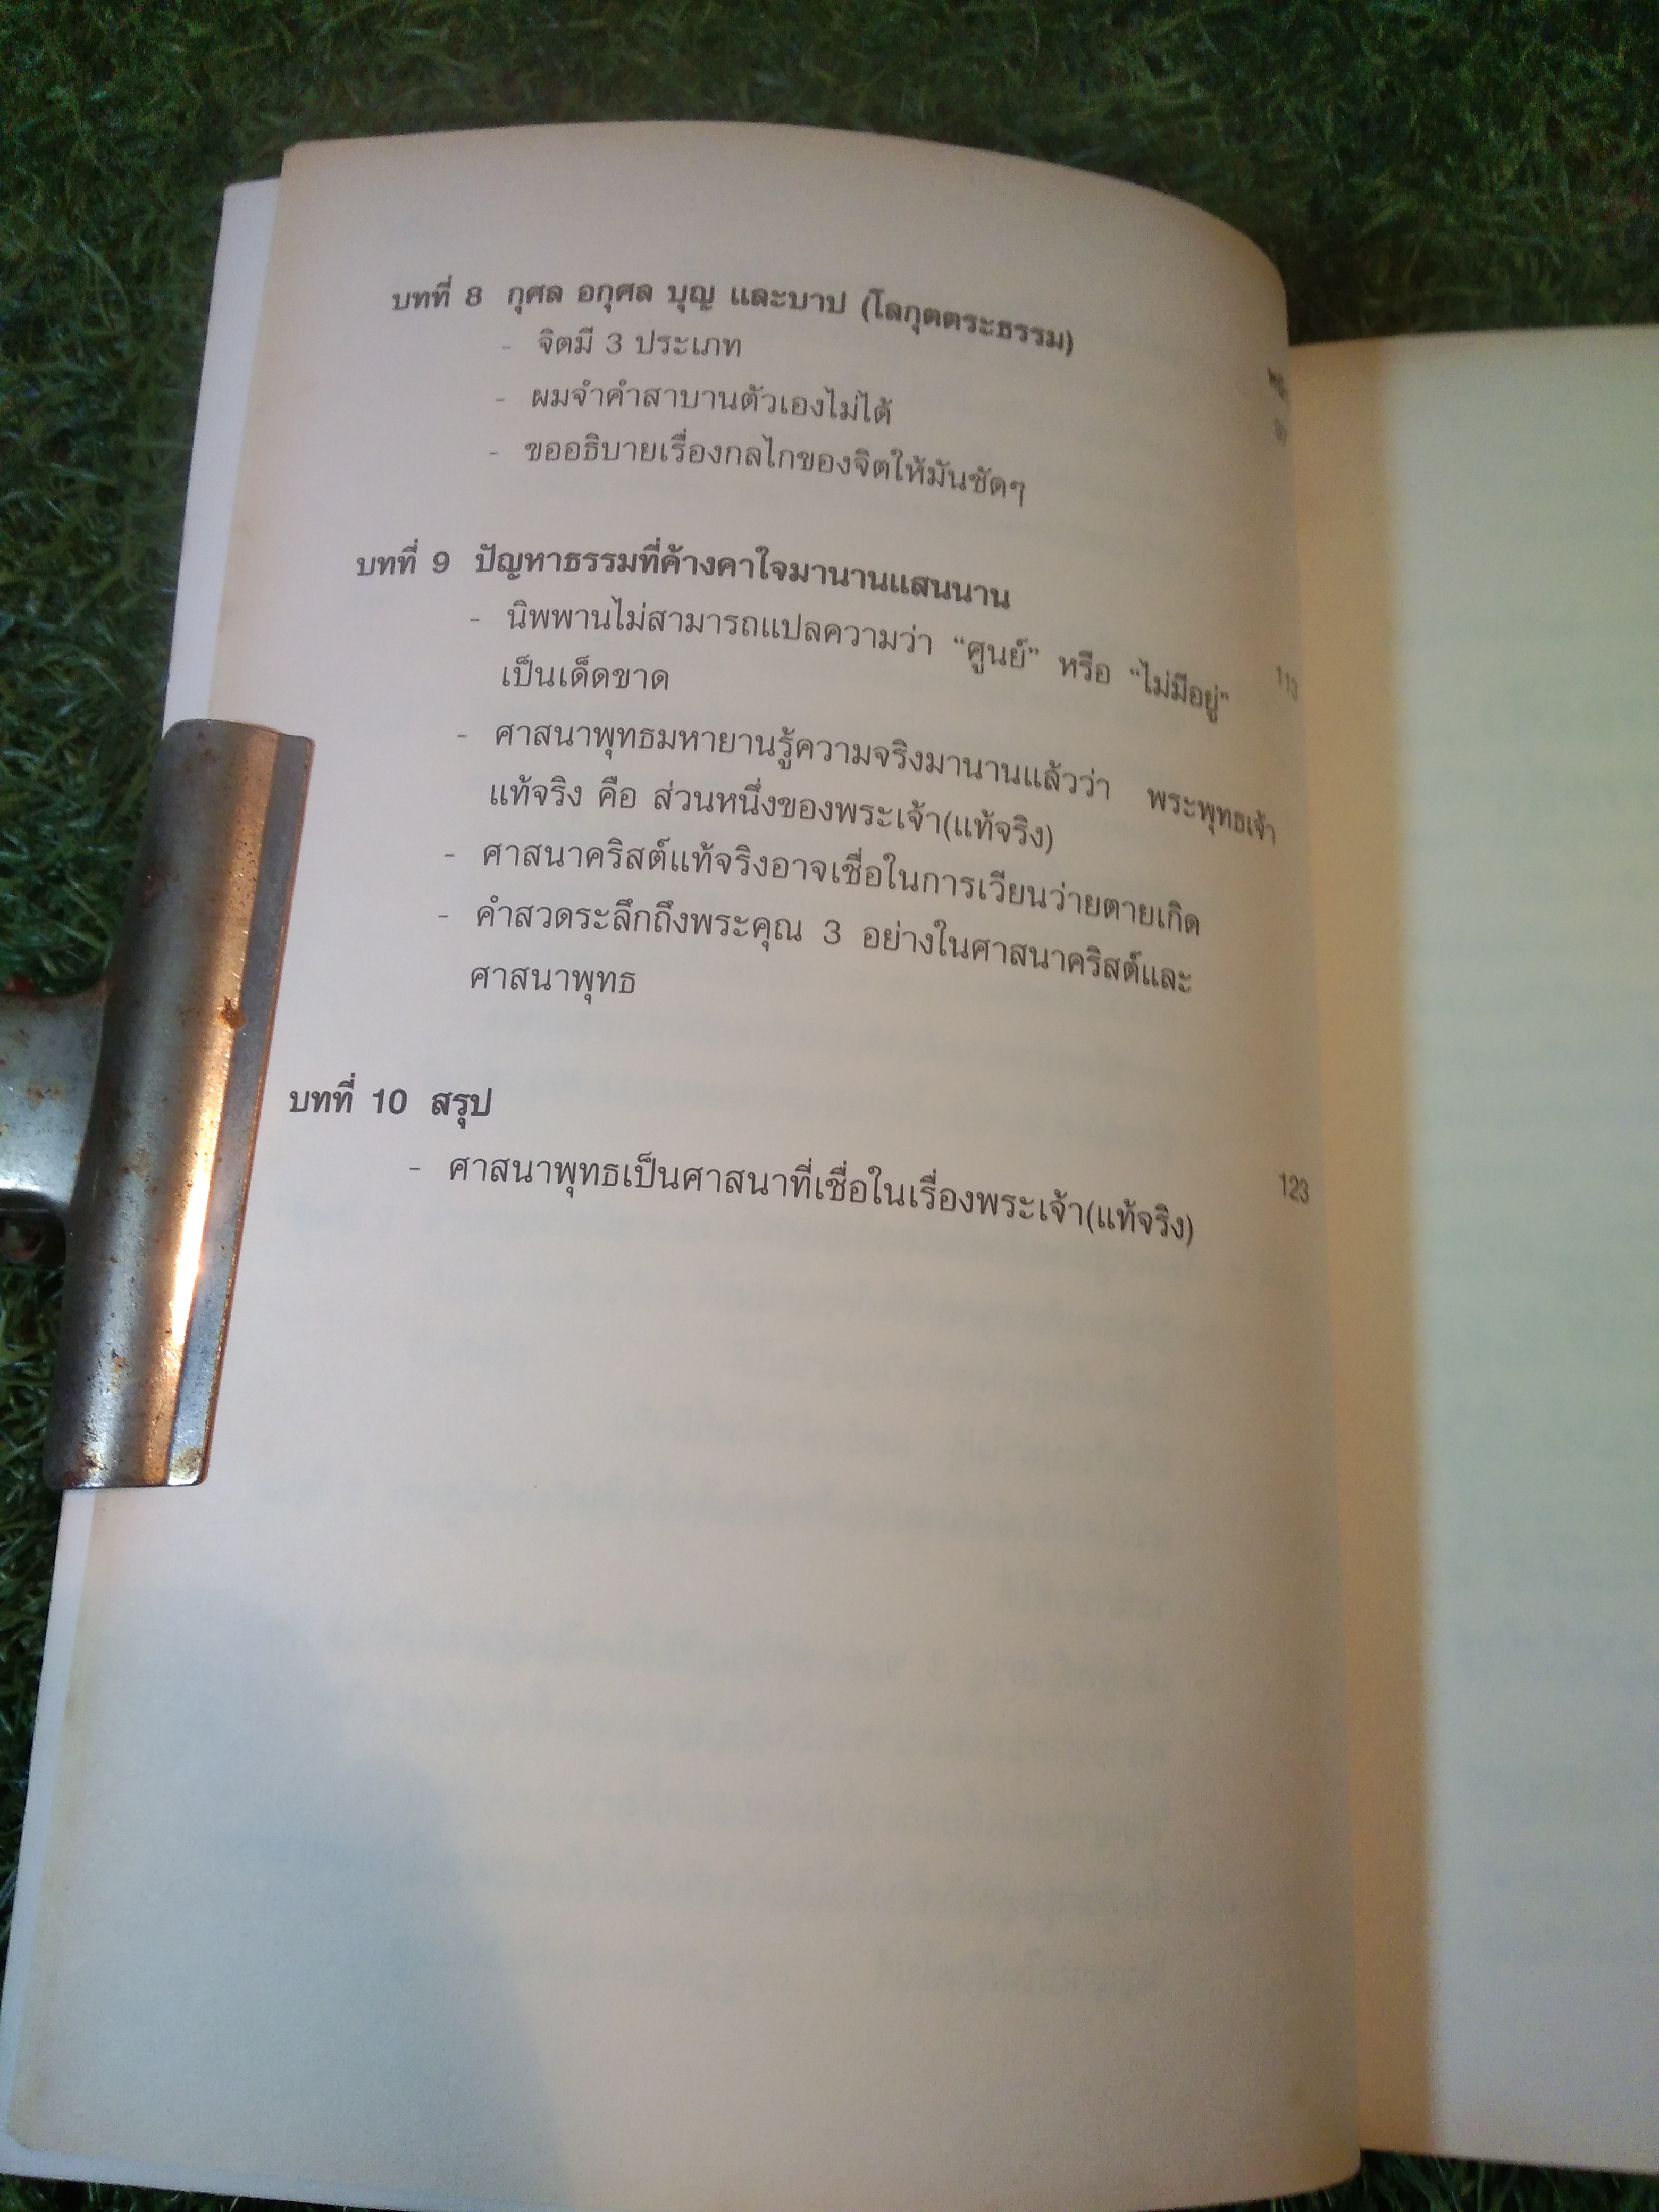 บทที่ 8 กุศล อกุศล บุญ และบาป (โลกุตตระธรรม)
- จิตมี 3 ประเภท
- ผมจำคำสาบานตัวเองไม่ได้
- ขออธิบายเรื่องกลไกของจิตให้มันชัดๆ
บทที่ 9 ปัญหาธรรมที่ค้างคาใจมานานแสนนาน 113
- นิพพานไม่สามารถแปลความว่า “ศูนย์” หรือ “ไม่มีอยู่”
เป็นเด็ดขาด
- ศาสนาพุทธมหายานรู้ความจริงมานานแล้วว่า พระพุทธเจ้า
แท้จริง คือ ส่วนหนึ่งของพระเจ้า(แท้จริง)
- ศาสนาคริสต์แท้จริงอาจเชื่อในการเวียนว่ายตายเกิด
- คำสวดระลึกถึงพระคุณ 3 อย่างในศาสนาคริสต์และ
ศาสนาพุทธ
บทที่ 10 สรุป 123
- ศาสนาพุทธเป็นศาสนาที่เชื่อในเรื่องพระเจ้า(แท้จริง)